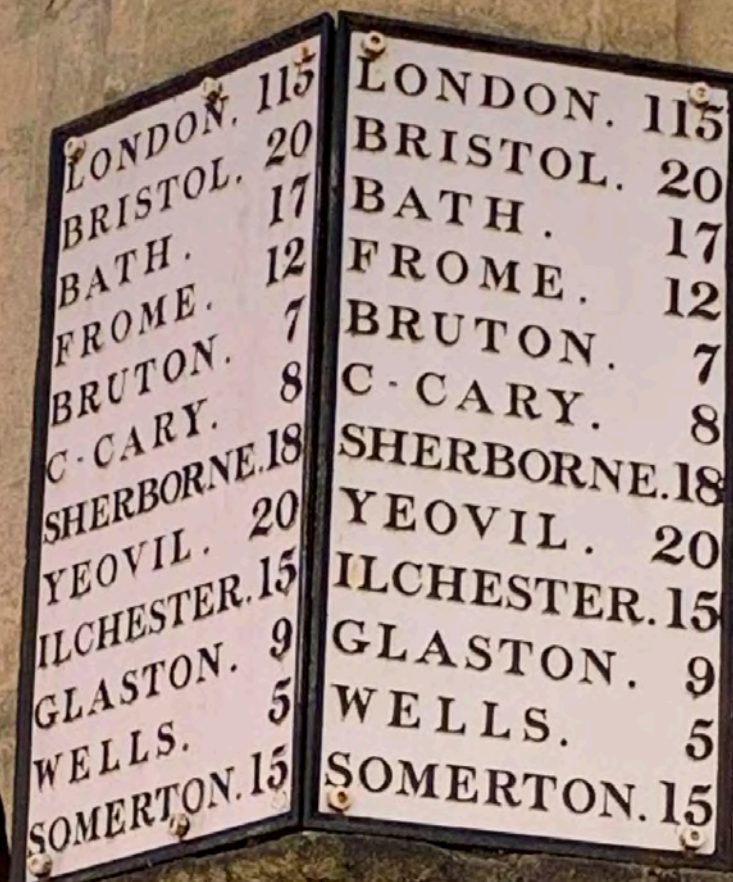 LONDON. 115
BRISTOL. 20
BATH. 17
FROME. 12
BRUTON. 7
C-CARY. 8
SHERBORNE. 18
YEOVIL. 20
ILCHESTER. 15
GLASTON. 9
WELLS. 5
SOMERTON. 15
LONDON. 115
BRISTOL. 20
BATH. 17
FROME. 12
BRUTON. 7
C-CARY. 8
SHERBORNE. 18
YEOVIL. 20
ILCHESTER. 15
GLASTON. 9
WELLS. 5
SOMERTON. 15